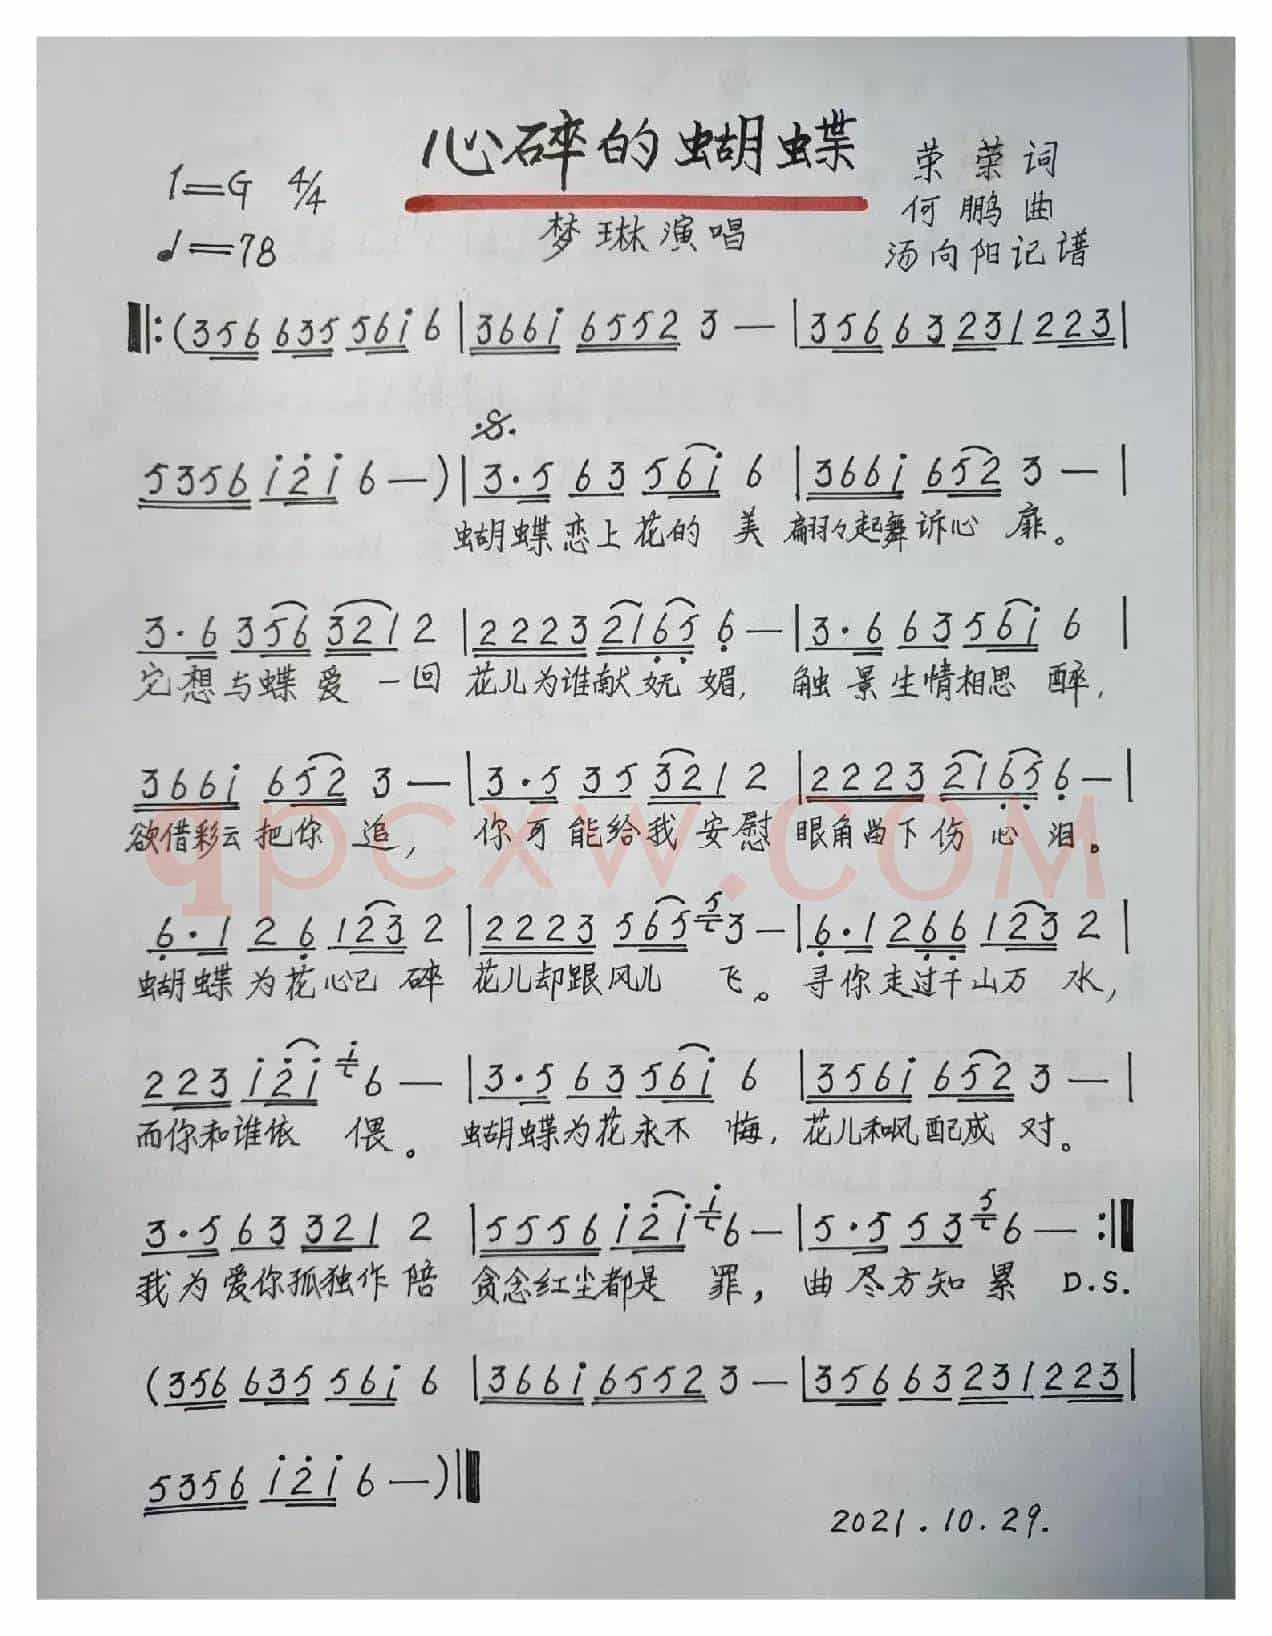 心碎的蝴蝶
1=G 4/4
荣荣词
何鹏曲
♩=78
梦琳演唱
汤向阳记谱
‖:(356 635 56i̇ 6 | 366i̇ 6552 3 — | 3566 3 231 223 |
5356 i̇2̇i̇ 6 — ) | 3·5 63 56i̇ 6 | 366i̇ 652 3 — |
蝴蝶恋上花的美 翩々起舞诉心扉。
3·6 356 321 2 | 2223 216̣5̣ 6̣ — | 3·6 63 56i̇ 6 |
它想与蝶爱一回 花儿为谁献妩媚, 触景生情相思醉,
366i̇ 652 3 — | 3·5 35 321 2 | 2223 216̣5̣ 6̣ — |
欲借彩云把你追, 你可能给我安慰 眼角留下伤心泪。
qpcxw.COM
6̣·1 26̣ 123 2 | 2223 565 5 3 — | 6̣·1 26̣6̣ 123 2 |
蝴蝶为花心已碎 花儿却跟风儿飞。寻你走过千山万水,
223 i̇2̇i̇ i̇ 6 — | 3·5 63 56i̇ 6 | 356i̇ 652 3 — |
而你和谁依偎。 蝴蝶为花永不悔, 花儿和风配成对。
3·5 63 321 2 | 5556 i̇2̇i̇ i̇ 6 — | 5·5 53 5 6 — :‖
我为爱你孤独作陪 贪念红尘都是罪, 曲尽方知累 D.S.
(356 635 56i̇ 6 | 366i̇ 6552 3 — | 3566 3 231 223 |
5356 i̇2̇i̇ 6 — )‖
2021.10.29.